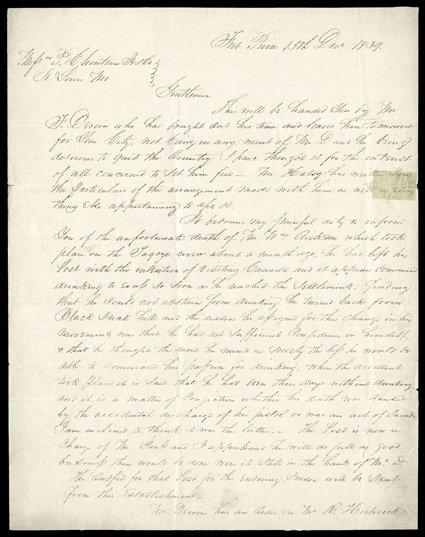 Fort Pierre 15th Decr 1839
Messrs P. Chouteau Jr & Co
St Louis Mo
Gentlemen
This will be handed you by Mr
F. Dervin who has bought out his time and leaves here tomorrow
for your City, not being in any want of Mr D and he being
desirous to quit the Country I have thought it for the interest
of all concerned to let him free - Mr Halsey has written you
the particulars of the arrangement made with him as well as every
thing else appertaining to
It becomes my painful duty to inform
You of the unfortunate death of Mr Wm Dickson which took
place on the about a month ago, he had left his
Post with the intention of visiting Canada and it appears commenced
drinking to excess so soon as he reached the Settlements. Finding
that he could not abstain from drinking he turned back from
Black Snake hill and the reason he assigned for this change in his
movements was that he had not sufficient Confidence in himself
& that he thought the more he mixed in Society the less he would be
able to command his passion for drinking, when the accident
took place it is said that he had been three days without drinking
and it is a matter of Conjecture whether his death was caused
by the accidental discharge of his pistol or was an act of Suicide
I am inclined to think it was the latter. - The Post is now in
Charge of Mr and I apprehend he will do full as good
business there as would be done were it still in the hands of Mr D.
The Outfit for that Post for the ensuing Season will be sent
from this Establishment.
Mr Dervin has an Order on Mr H.